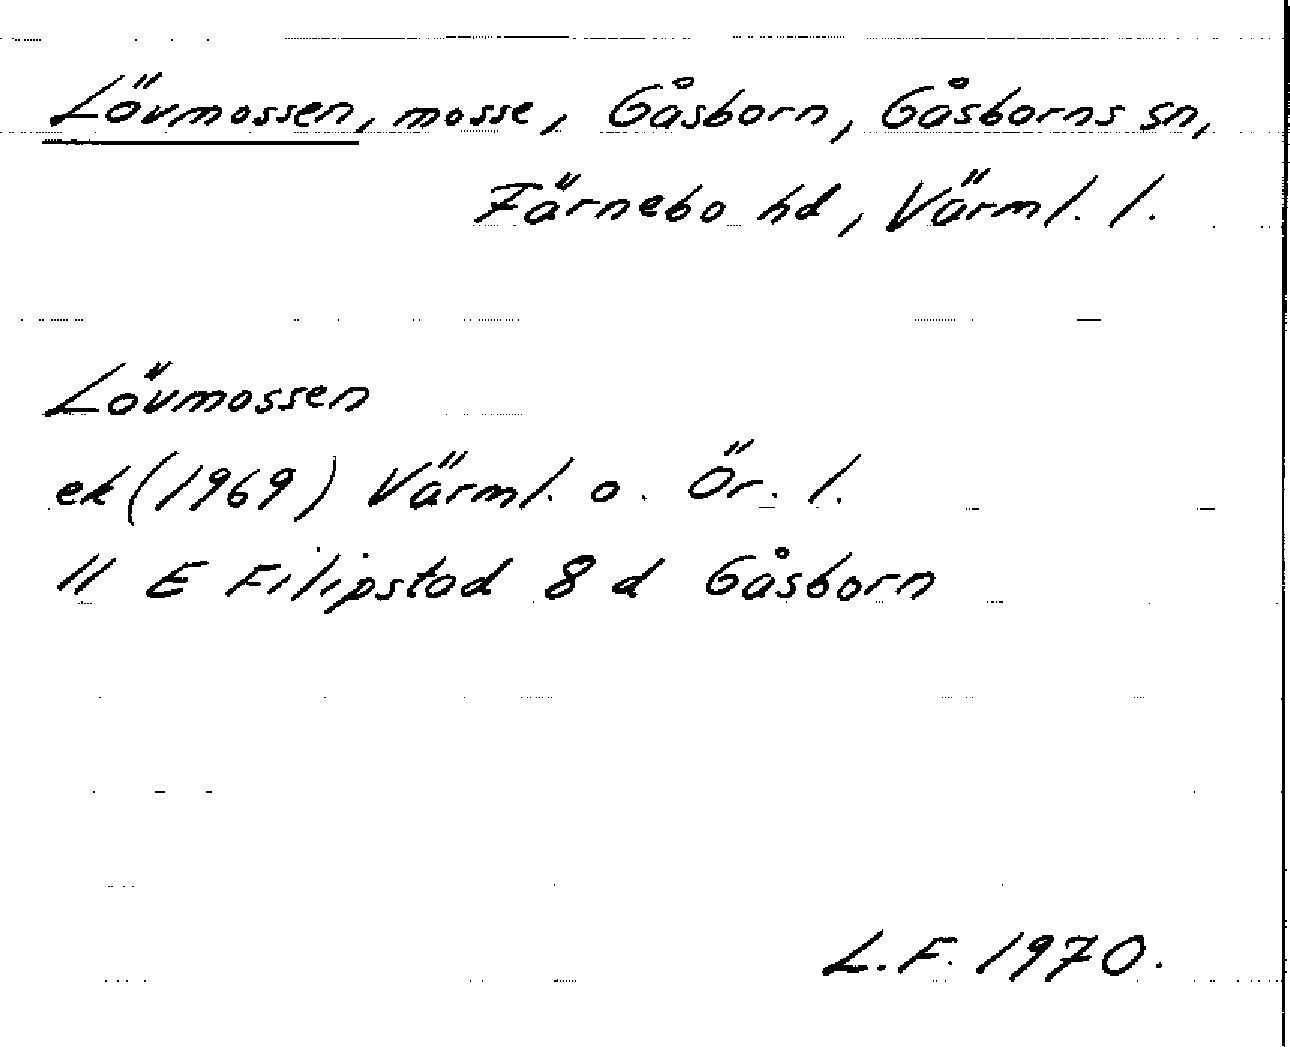 Lövmossen, mosse, Gåsborn, Gåsborns sn,
Färnebo hd, Värml. l.
Lövmossen
ek (1969) Värml. o. Ör. l.
11 E Filipstad 8 d Gåsborn
L.F. 1970.